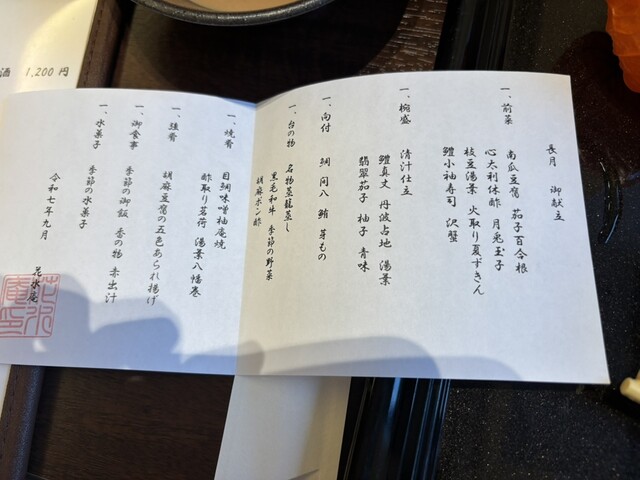 長月 御献立
一、前菜
南瓜豆腐 茄子百合根
心太利休酢 月兎玉子
枝豆湯葉 火取り夏ずきん
鱧小袖寿司 沢蟹
一、椀盛 清汁仕立
鱧真丈 丹波占地 湯葉
翡翠茄子 柚子 青味
一、向付 鯛 間八 鮪 芽もの
一、台の物 名物蒸籠蒸し
黒毛和牛 季節の野菜
胡麻ポン酢
一、焼肴 目鯛味噌柚庵焼
酢取り茗荷 湯葉八幡巻
一、強肴 胡麻豆腐の五色あられ揚げ
一、御食事 季節の御飯 香の物 赤出汁
一、水菓子 季節の水菓子
令和七年九月
花水庵
酒 1,200 円